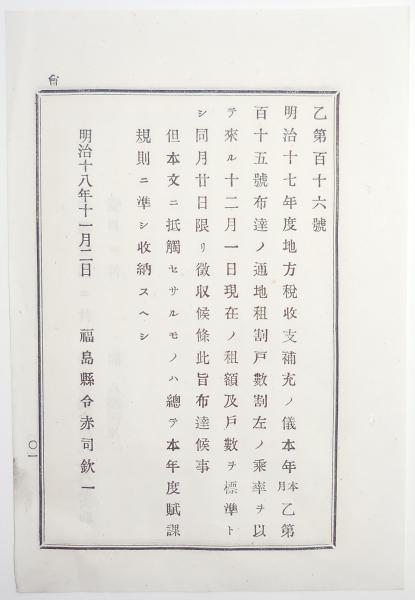 乙第百十六號
明治十七年度地方稅收支補充ノ儀本年本月乙第
百十五號布達ノ通地租割戶數割左ノ乘率ヲ以
テ來ル十二月一日現在ノ租額及戶數ヲ標準ト
シ同月廿日限リ徵収候條此旨布達候事
但本文ニ抵觸セサルモノハ總テ本年度賦課
規則ニ準シ收納スヘシ
明治十八年十一月二日
福島縣令赤司欽一
〇一